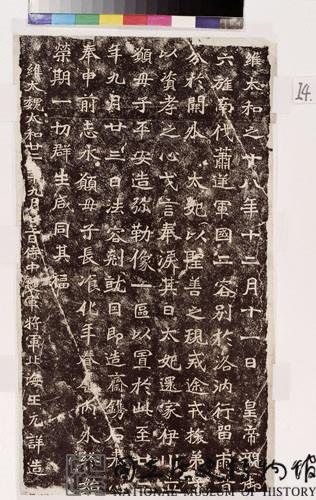 維太和之十八年十二月十一日皇帝親御
六旌南伐蕭逆軍國二容別於洛汭行留兩音
分於闕外太妃以聖善之規戒途戎旅弟子
以資孝之心戈言奉淚其日太妃還家伊川立
願母子平安造弥勒像一區以置於此至廿二
年九月廿三日法容剋就因即造齋鐫石表心
奉申前志永願母子長化年眷屬內外終始
榮期一切群生咸同其福
維大魏太和廿二年九月廿三日侍中護軍將軍北海王元詳造
14.
國立歷史博物館
NATIONAL MUSEUM OF HISTORY